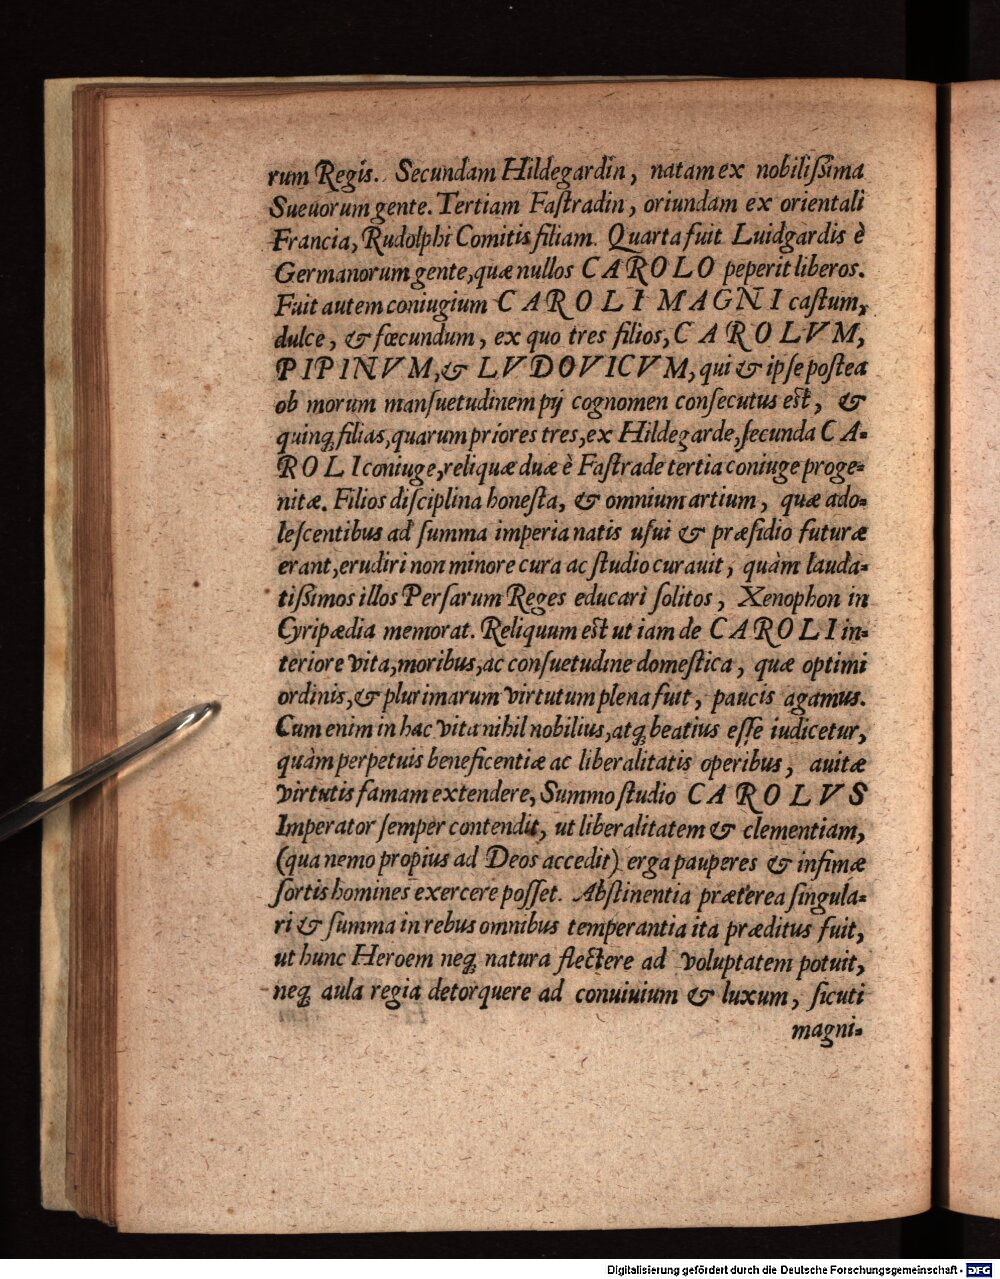 rum Regis. Secundam Hildegardin, natam ex nobilißima
Sueuorum gente. Tertiam Faſtradin, oriundam ex orientali
Francia, Rudolphi Comitis filiam. Quarta fuit Luidgardis è
Germanorum gente, quæ nullos CAROLO peperit liberos.
Fuit autem coniugium CAROLI MAGNI caſtum,
dulce, & fœcundum, ex quo tres filios, CAROLVM,
PIPINVM, & LVDOVICVM, qui & ipſe poſtea
ob morum manſuetudinem pij cognomen conſecutus eſt, &
quinq; filias, quarum priores tres, ex Hildegarde, ſecunda CA-
ROLI coniuge, reliquæ duæ è Faſtrade tertia coniuge proge-
nitæ. Filios diſciplina honeſta, & omnium artium, quæ ado-
leſcentibus ad ſumma imperia natis uſui & præſidio futuræ
erant, erudiri non minore cura ac ſtudio curauit, quàm lauda-
tißimos illos Perſarum Reges educari ſolitos, Xenophon in
Cyripædia memorat. Reliquum eſt ut iam de CAROLI in-
teriore vita, moribus, ac conſuetudine domeſtica, quæ optimi
ordinis, & plurimarum virtutum plena fuit, paucis agamus.
Cum enim in hac vita nihil nobilius, atq; beatius eſſe iudicetur,
quàm perpetuis beneficentiæ ac liberalitatis operibus, auitæ
virtutis famam extendere, Summo ſtudio CAROLVS
Imperator ſemper contendit, ut liberalitatem & clementiam,
(qua nemo propius ad Deos accedit) erga pauperes & infimæ
ſortis homines exercere poſſet. Abſtinentia præterea ſingula-
ri & ſumma in rebus omnibus temperantia ita præditus fuit,
ut hunc Heroem neq; natura flectere ad voluptatem potuit,
neq; aula regia detorquere ad conuiuium & luxum, ſicuti
magni-
Digitalisierung gefördert durch die Deutsche Forschungsgemeinschaft - DFG